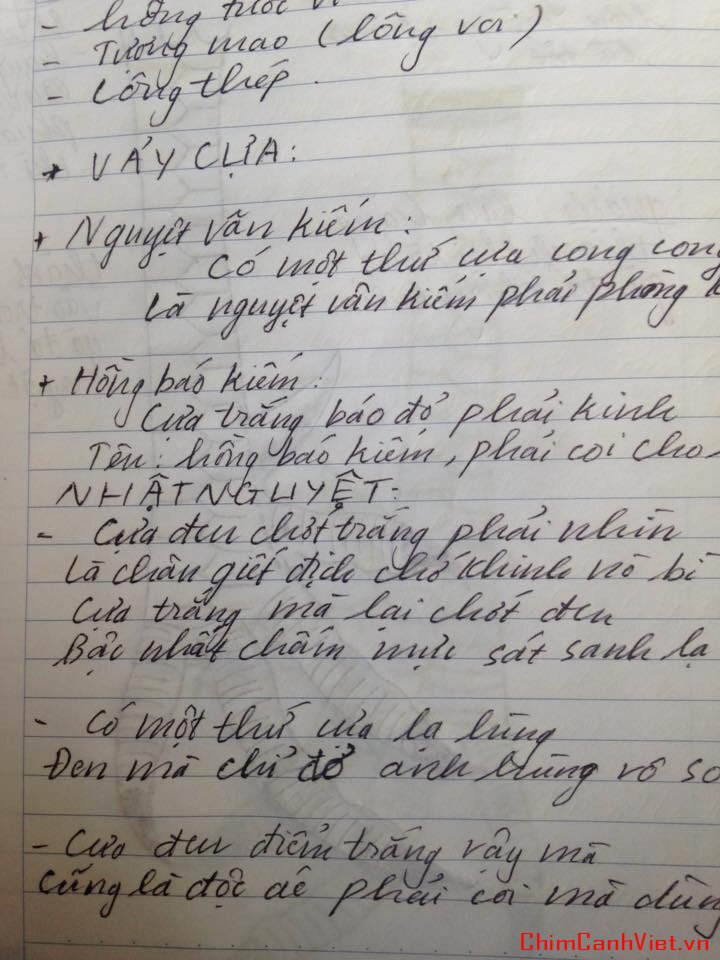 - hồng tước v
- Tượng mao (lông voi)
- Lông thép.
* VẢY CỰA:
+ Nguyệt vân kiếm:
Có một thứ cựa cong cong
Là nguyệt vân kiếm phải phòng
+ Hồng báo kiếm:
Cựa trắng báo đỏ phải kinh
Tên: hồng báo kiếm, phải coi cho
NHẬT NGUYỆT:
- Cựa đen chót trắng phải nhìn
Là chân giết địch chớ khinh nó bì
Cựa trắng mà lại chót đen
Bậc nhất chấm mực sát sanh lạ
- Có một thứ cựa lạ lùng
Đen mà chỉ đỏ anh hùng vô so
- Cựa đen điểm trắng vậy mà
Cũng là độc dê phải coi mà dùng
ChimCanhViet.vn